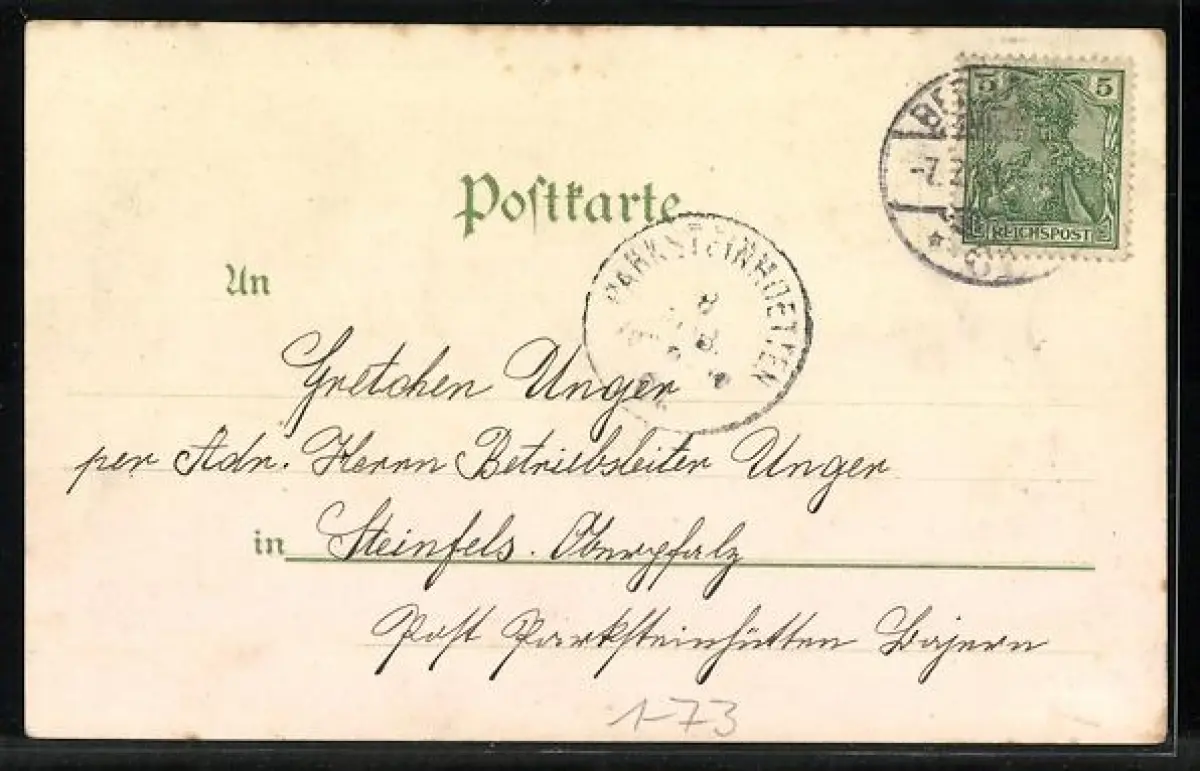 5 5
REICHSPOST
-7.2
Postkarte
An
PARKSTEINHUETTEN
8
Gretchen Unger
per Adr. Herrn Betriebsleiter Unger
in Steinfels. Oberpfalz
Post Parksteinhütten Bayern
1-73